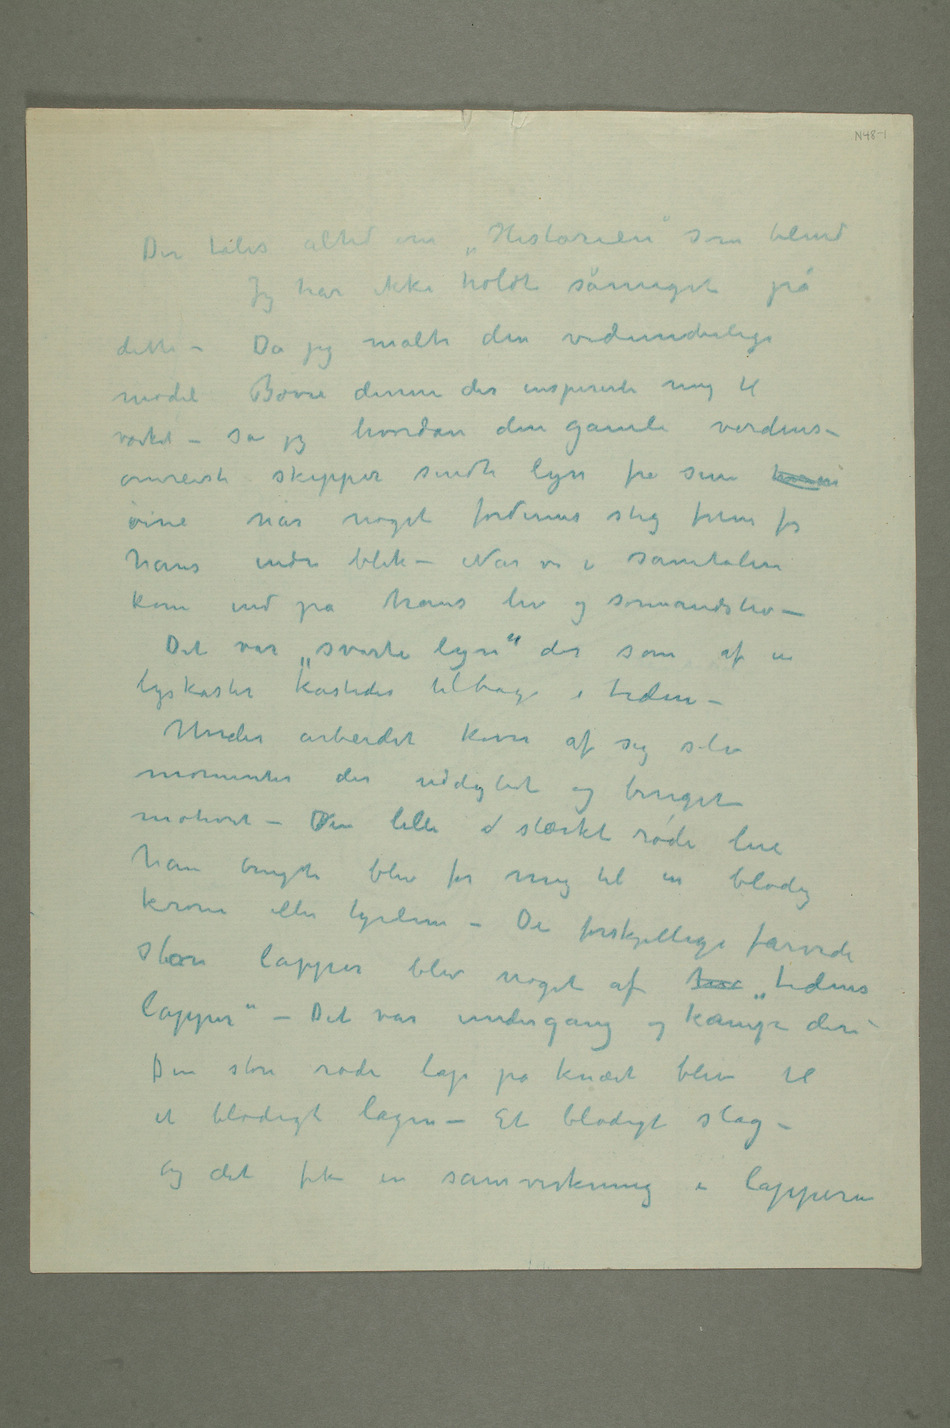 N48-1
Der tales altid om „Historien“ som blind
Jeg har ikke holdt såmeget på
dette – Da jeg malte den vidunderlige
model Børre denne der inspirerte mig til
værket – så jeg hvordan den gamle verdens-
omreiste skipper sendte lyn fra sine
øine når noget fordums steg frem for
hans indre blik – Når vi i samtalen
kom ind på hans liv og sømandsliv –
Det var „svarte lyn“ der som af en
lyskaster kastedes tilbage i tiden –
Under arbeidet kom af sig selv
momenter der uddybet og beriget
motivet – Den lille stærkt røde lue
han brugte blev for mig til en blodig
krone eller hjelm – De forskjellige farvede
store lapper blev noget af „tidens
lapper“ – Det var undergang og kampe deri –
Den store røde lap på knæet blev til
et blodigt lagen – Et blodigt slag –
Og det fik en samvirkning i lapperne